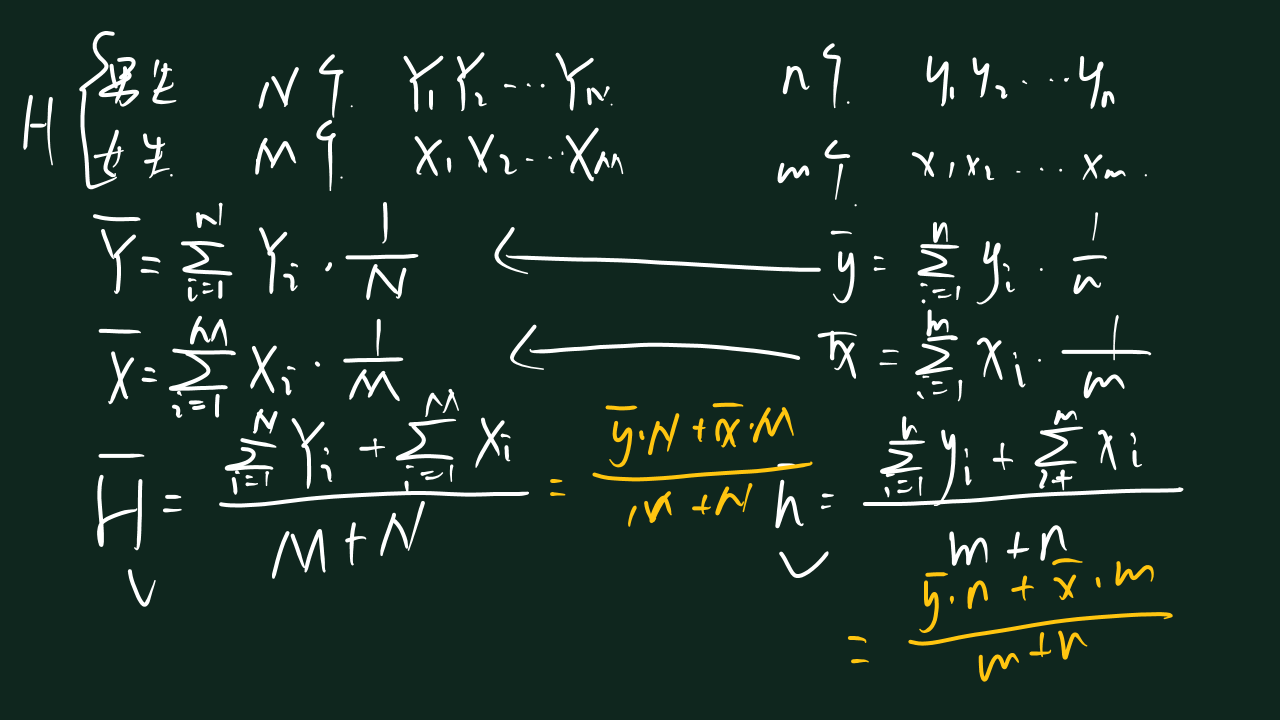 H { 男生 N个. Y₁ Y₂ ... Y_N. n个. y₁ y₂ ... yₙ
女生. M个. X₁ X₂ ... X_M m个. x₁ x₂ ... xₘ.
Y̅ = ∑_{i=1}^{N} Y_i · 1/N ← y̅ = ∑_{i=1}^{n} y_i · 1/n
X̅ = ∑_{i=1}^{M} X_i · 1/M ← x̅ = ∑_{i=1}^{m} x_i · 1/m
H̅ = (∑_{i=1}^{N} Y_i + ∑_{i=1}^{M} X_i) / (M+N) = (y̅·N + x̅·M) / (M+N) h̅ = (∑_{i=1}^{n} y_i + ∑_{i=1}^{m} x_i) / (m+n)
= (y̅·n + x̅·m) / (m+n)